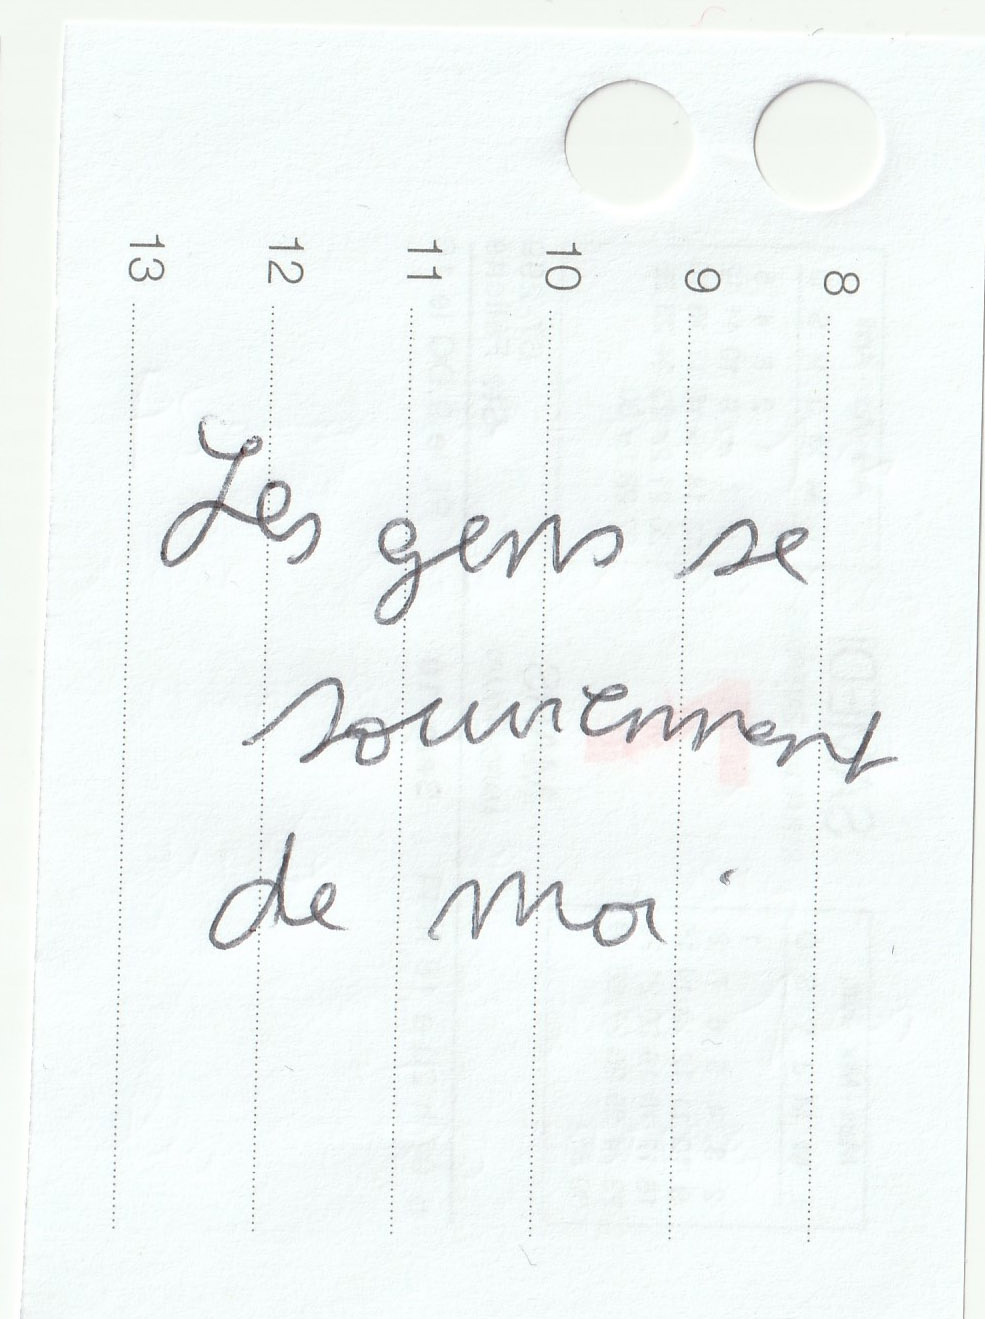 8
9
10
11
12
13
Les gens se
souviennent
de moi